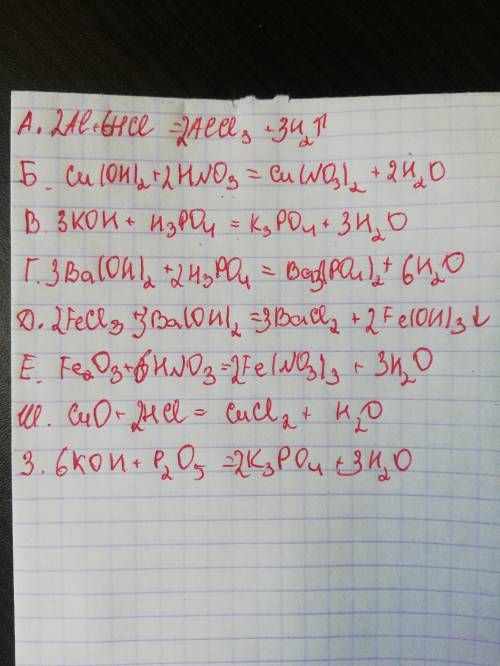 А. 2Al+6HCl =2AlCl₃ +3H₂↑
Б. Cu(OH)₂+2HNO₃ = Cu(NO₃)₂ +2H₂O
В. 3KOH+ H₃PO₄ = K₃PO₄+ 3H₂O
Г. 3Ba(OH)₂ +2H₃PO₄ = Ba₃(PO₄)₂+ 6H₂O
Д. 2FeCl₃ +3Ba(OH)₂ =3BaCl₂ + 2Fe(OH)₃↓
Е. Fe₂O₃+6HNO₃=2Fe(NO₃)₃ + 3H₂O
Ш. CuO+2HCl = CuCl₂ + H₂O
З. 6KOH + P₂O₅ =2K₃PO₄ +3H₂O